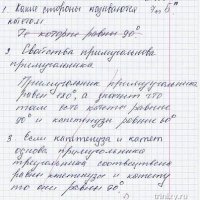 1 Какие стороны называются 7 "Б"
катетом
Те которые равны 90°
2 Свойства прямоугольного
треугольника
Треугольник прямоугольника
равен 180°, а значит что
там есть катет равные
90° и капетнузы равные 60°
3 если капетнуза и катет
одного прямоугольника
треугольника соответственно
равны капетнузы и катету
то они равны 90°
trinixy.ru